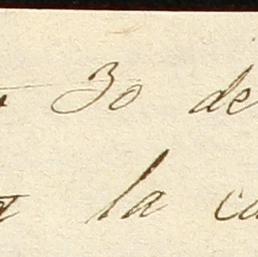 30 de
la ca